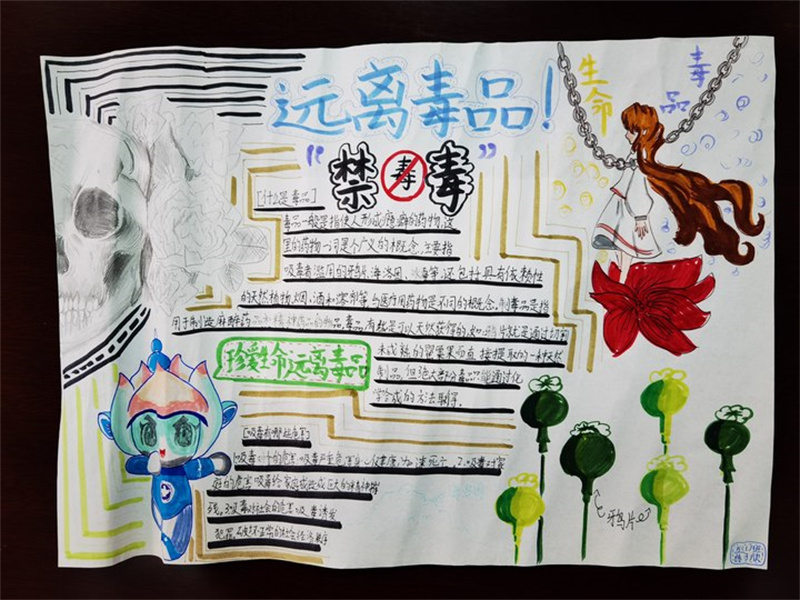 远离毒品!
生命
毒品
“禁毒”
毒
[什么是毒品]
毒品一般是指使人形成瘾癖的药物,这
里的药物一词是个广义的概念,主要指
吸毒者滥用的鸦片、海洛因、冰毒等,还包括具有依赖性
的天然植物、烟、酒和溶剂等,与医疗用药物是不同的概念。制毒品是指
用于制造麻醉药品和精神药品的物品。毒品有些是可以天然获得的,如鸦片就是通过切割
未成熟的罂粟果而直接提取的一种天然
制品,但绝大部分毒品只能通过化
学合成的方法取得。
珍爱生命远离毒品
[吸毒有哪些危害]
庭的危害:吸毒给家庭造成巨大的
残。3.吸毒对社会的危害:吸毒诱发
犯罪,破坏正常的社会经济秩序
鸦片